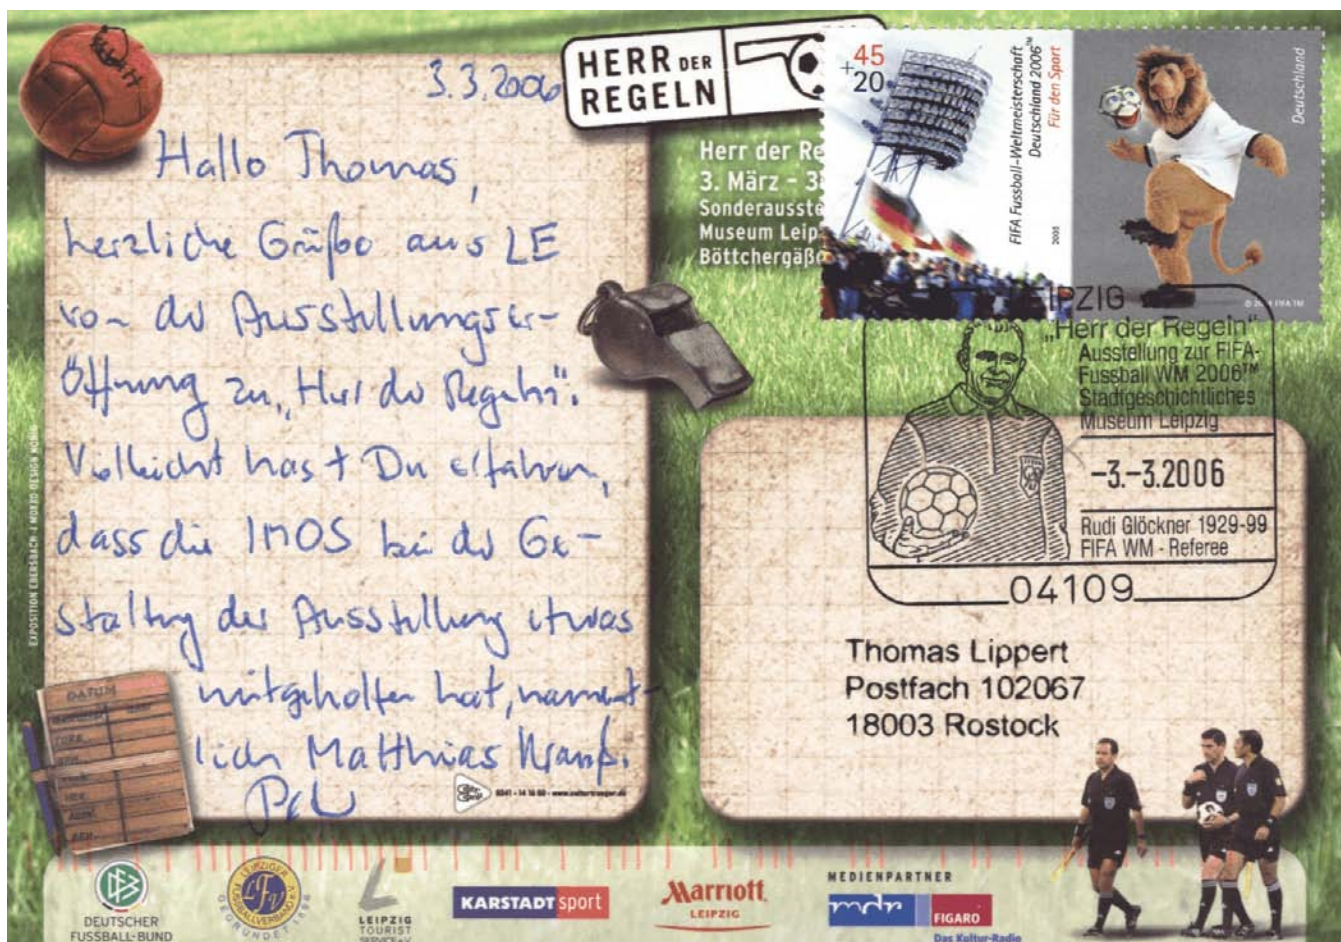 3.3.2006
Hallo Thomas,
herzliche Grüße aus LE
von der Ausstellungser-
öffnung zu „Herr der Regeln“.
Vielleicht hast Du erfahren,
dass die IMOS bei der Ge-
staltung der Ausstellung etwas
mitgeholfen hat, nament-
lich Matthias
HERR DER
REGELN
Herr der Re
3. März - 3
Sonderausste
Museum Leip
Böttchergäß
45
+20
FIFA Fussball-Weltmeisterschaft
Deutschland 2006™
Für den Sport
Deutschland
IPZIG
„Herr der Regeln“
Ausstellung zur FIFA-
Fussball WM 2006™
Stadtgeschichtliches
Museum Leipzig
-3.-3.2006
Rudi Glöckner 1929-99
FIFA WM - Referee
04109
Thomas Lippert
Postfach 102067
18003 Rostock
DATUM
EXPOSITION EBERSBACH / MOKKO-DESIGN
DEUTSCHER
FUSSBALL-BUND
LEIPZIGER
FUSSBALLVERBAND E.V.
LFV
GEGRÜNDET 1896
LEIPZIG
TOURIST
SERVICE e.V.
KARSTADT sport
Marriott
LEIPZIG
MEDIENPARTNER
mdr FIGARO
Das Kultur-Radio